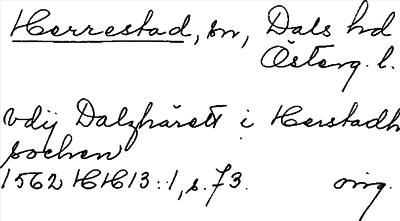 Herrestad, sn, Dals hd
Österg. l.
vdij Dalzhärett i Herstadh
sochen
1562 HH13:1, s. 73. orig.